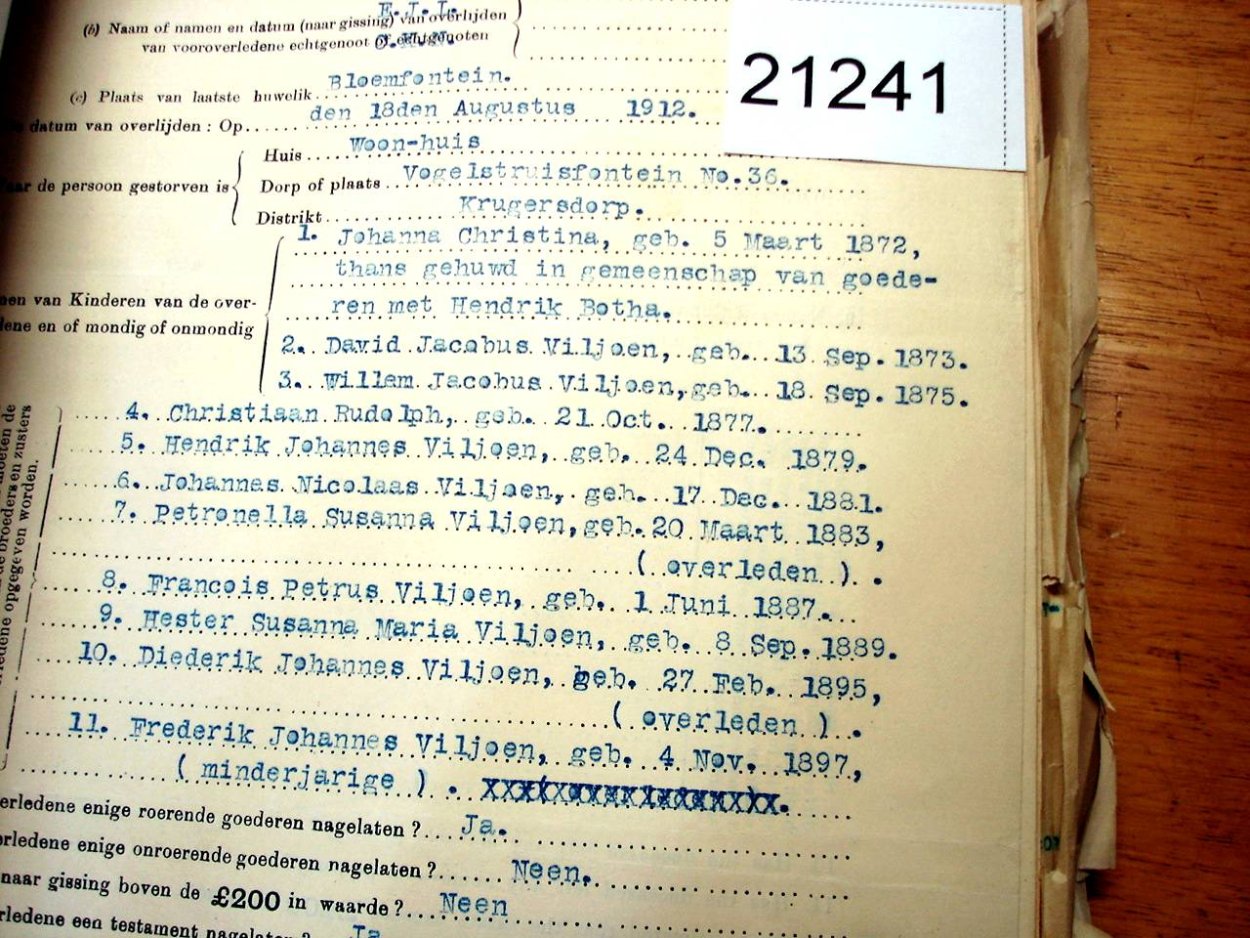 E.J.L.
(b) Naam of namen en datum (naar gissing) van overlijden
van vooroverledene echtgenoot of echtgenoten
21241
(c) Plaats van laatste huwelik .. Bloemfontein.
datum van overlijden : Op..... den 18den Augustus 1912.
Huis .... Woon-huis
de persoon gestorven is
Dorp of plaats .. Vogelstruisfontein No.36.
Distrikt ........ Krugersdorp.
1. Johanna Christina, geb. 5 Maart 1872,
thans gehuwd in gemeenschap van goede-
ren met Hendrik Botha.
van Kinderen van de over-
en of mondig of onmondig
2. David Jacobus Viljoen, geb. 13 Sep. 1873.
3. Willem Jacobus Viljoen, geb. 18 Sep. 1875.
4. Christiaan Rudolph, geb. 21 Oct. 1877.
5. Hendrik Johannes Viljoen, geb. 24 Dec. 1879.
6. Johannes Nicolaas Viljoen, geb. 17 Dec. 1881.
7. Petronella Susanna Viljoen, geb. 20 Maart 1883,
( overleden ).
8. Francois Petrus Viljoen, geb. 1 Juni 1887.
9. Hester Susanna Maria Viljoen, geb. 8 Sep. 1889.
10. Diederik Johannes Viljoen, geb. 27 Feb. 1895,
( overleden ).
11. Frederik Johannes Viljoen, geb. 4 Nov. 1897,
( minderjarige ).
de broeders en zusters
opgegeven worden.
enige roerende goederen nagelaten ?... Ja.
enige onroerende goederen nagelaten ?...... Neen.
naar gissing boven de £200 in waarde ?... Neen
een testament nagelaten ? Ja